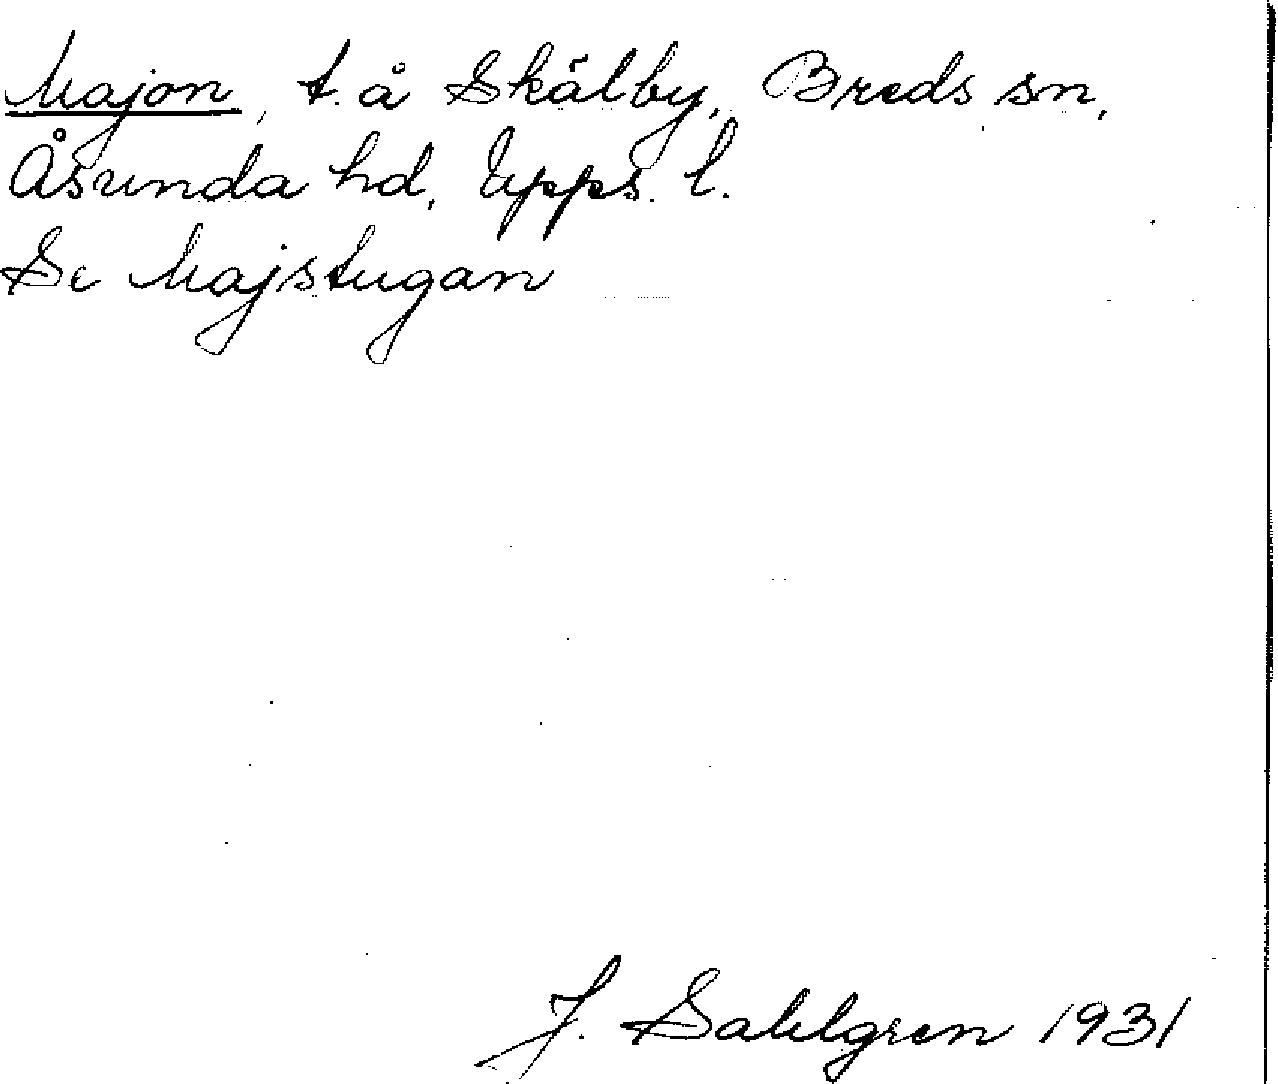 Majon, t. å Skälby, Breds sn,
Åsunda hd, Upps. l.
Se Majstugan
J. Sahlgren 1931